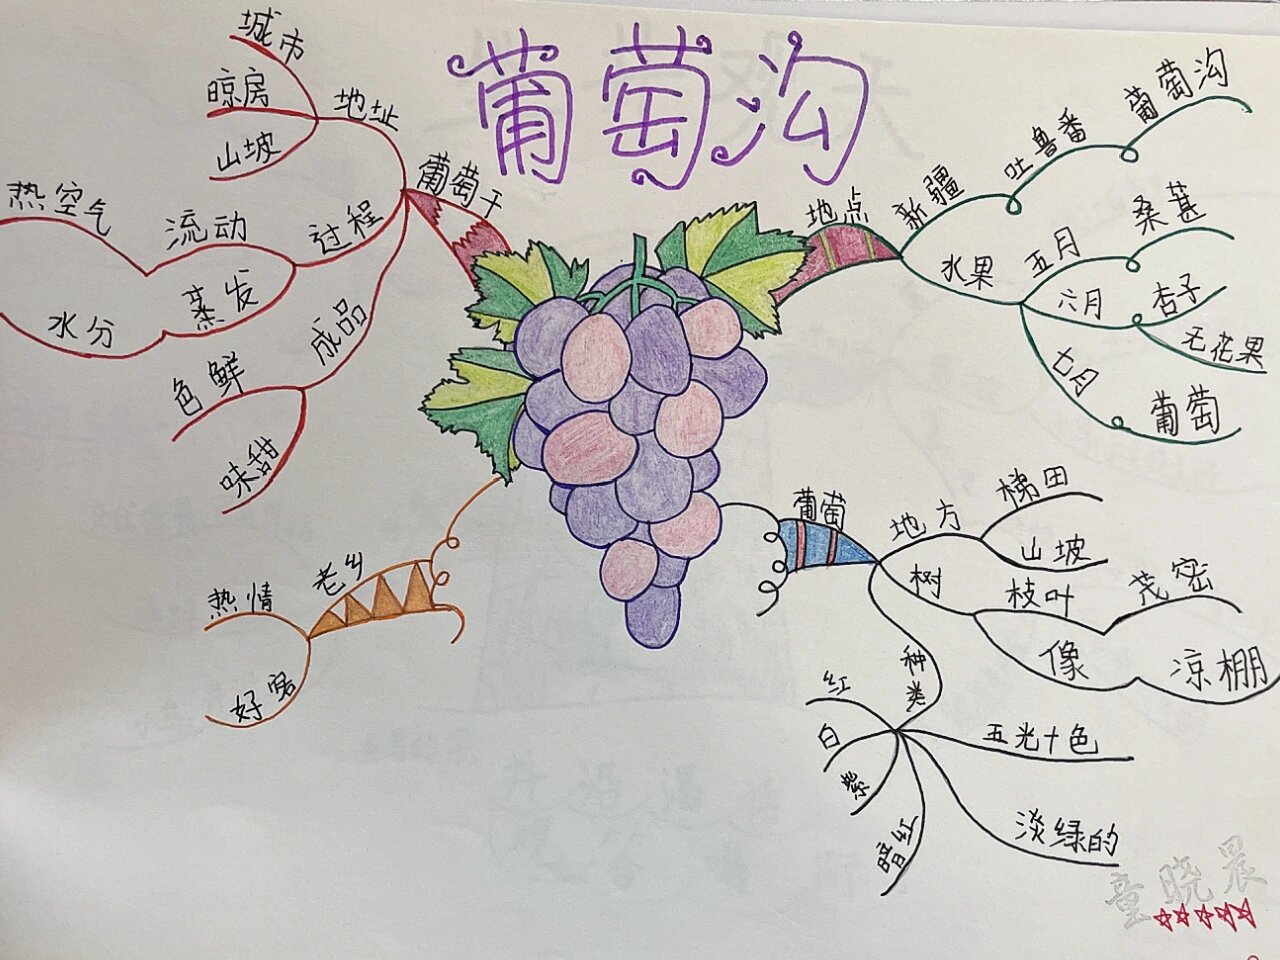 葡萄沟
地点
新疆
吐鲁番
葡萄沟
水果
五月
桑葚
六月
杏子
无花果
七月
葡萄
葡萄
地方
梯田
山坡
树
枝叶
茂密
像
凉棚
种类
红
白
紫
暗红
五光十色
淡绿的
老乡
热情
好客
葡萄干
地址
城市
晾房
山坡
过程
流动
热空气
蒸发
水分
成品
色鲜
味甜
童晓晨